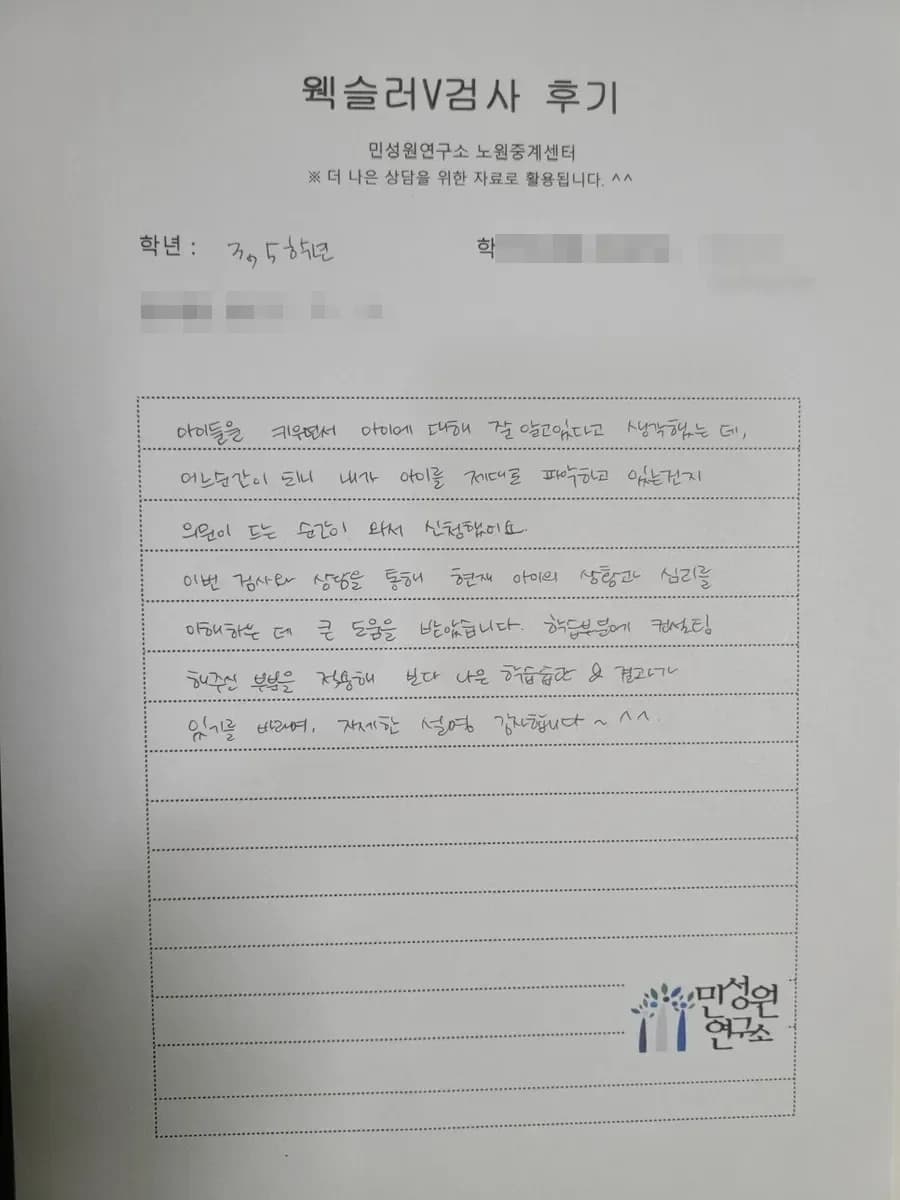 웩슬러V검사 후기
민성원연구소 노원중계센터
※ 더 나은 상담을 위한 자료로 활용됩니다. ^^
학년 : 3, 5학년 학
아이들을 키우면서 아이에 대해 잘 알고있다고 생각했는 데,
어느순간이 되니 내가 아이를 제대로 파악하고 있는건지
의문이 드는 순간이 와서 신청했어요.
이번 검사와 상담을 통해 현재 아이의 상황과 심리를
이해하는 데 큰 도움을 받았습니다. 학습부분에 컨설팅
해주신 부분을 적용해 보다 나은 학습습관 & 결과가
있기를 바라며, 자세한 설명 감사합니다 ~ ^^.
민성원
연구소